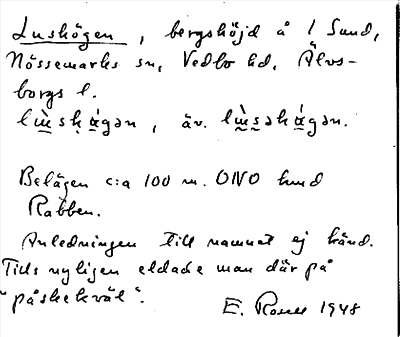 Lushögen, bergshöjd å 1 Sund,
Nössemarks sn, Vedbo hd, Älvs-
borgs l.
lùshágən, äv. lùsəhágən.
Belägen c:a 100 m. ONO hund
Rabben.
Anledningen till namnet ej känd.
Tills nyligen eldade man där på
"påskekväl".
E. Rosell 1948